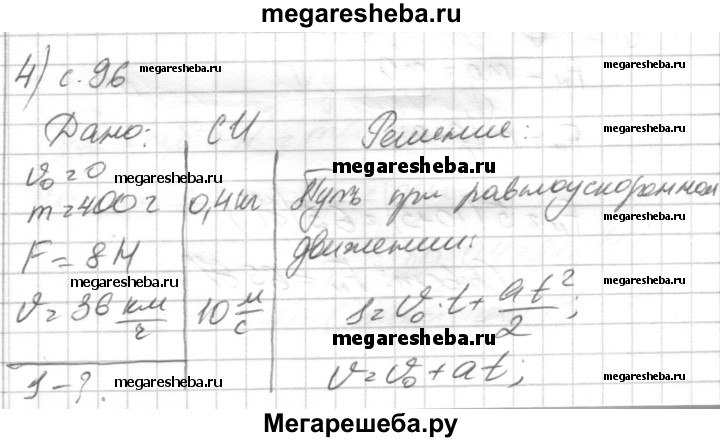 megaresheba.ru
4) с. 96 megaresheba.ru megaresheba.ru
Дано: СИ Решение: megaresheba.ru
v₀ = 0 megaresheba.ru megaresheba.ru
m = 400 г 0,4 кг Путь при равноускоренном
F = 8 Н движении:
megaresheba.ru megaresheba.ru
v = 36 км/ч 10 м/с s = v₀·t + at²/2;
megaresheba.ru
s - ? megaresheba.ru v = v₀ + at; megaresheba.ru
Мегарешеба.ру